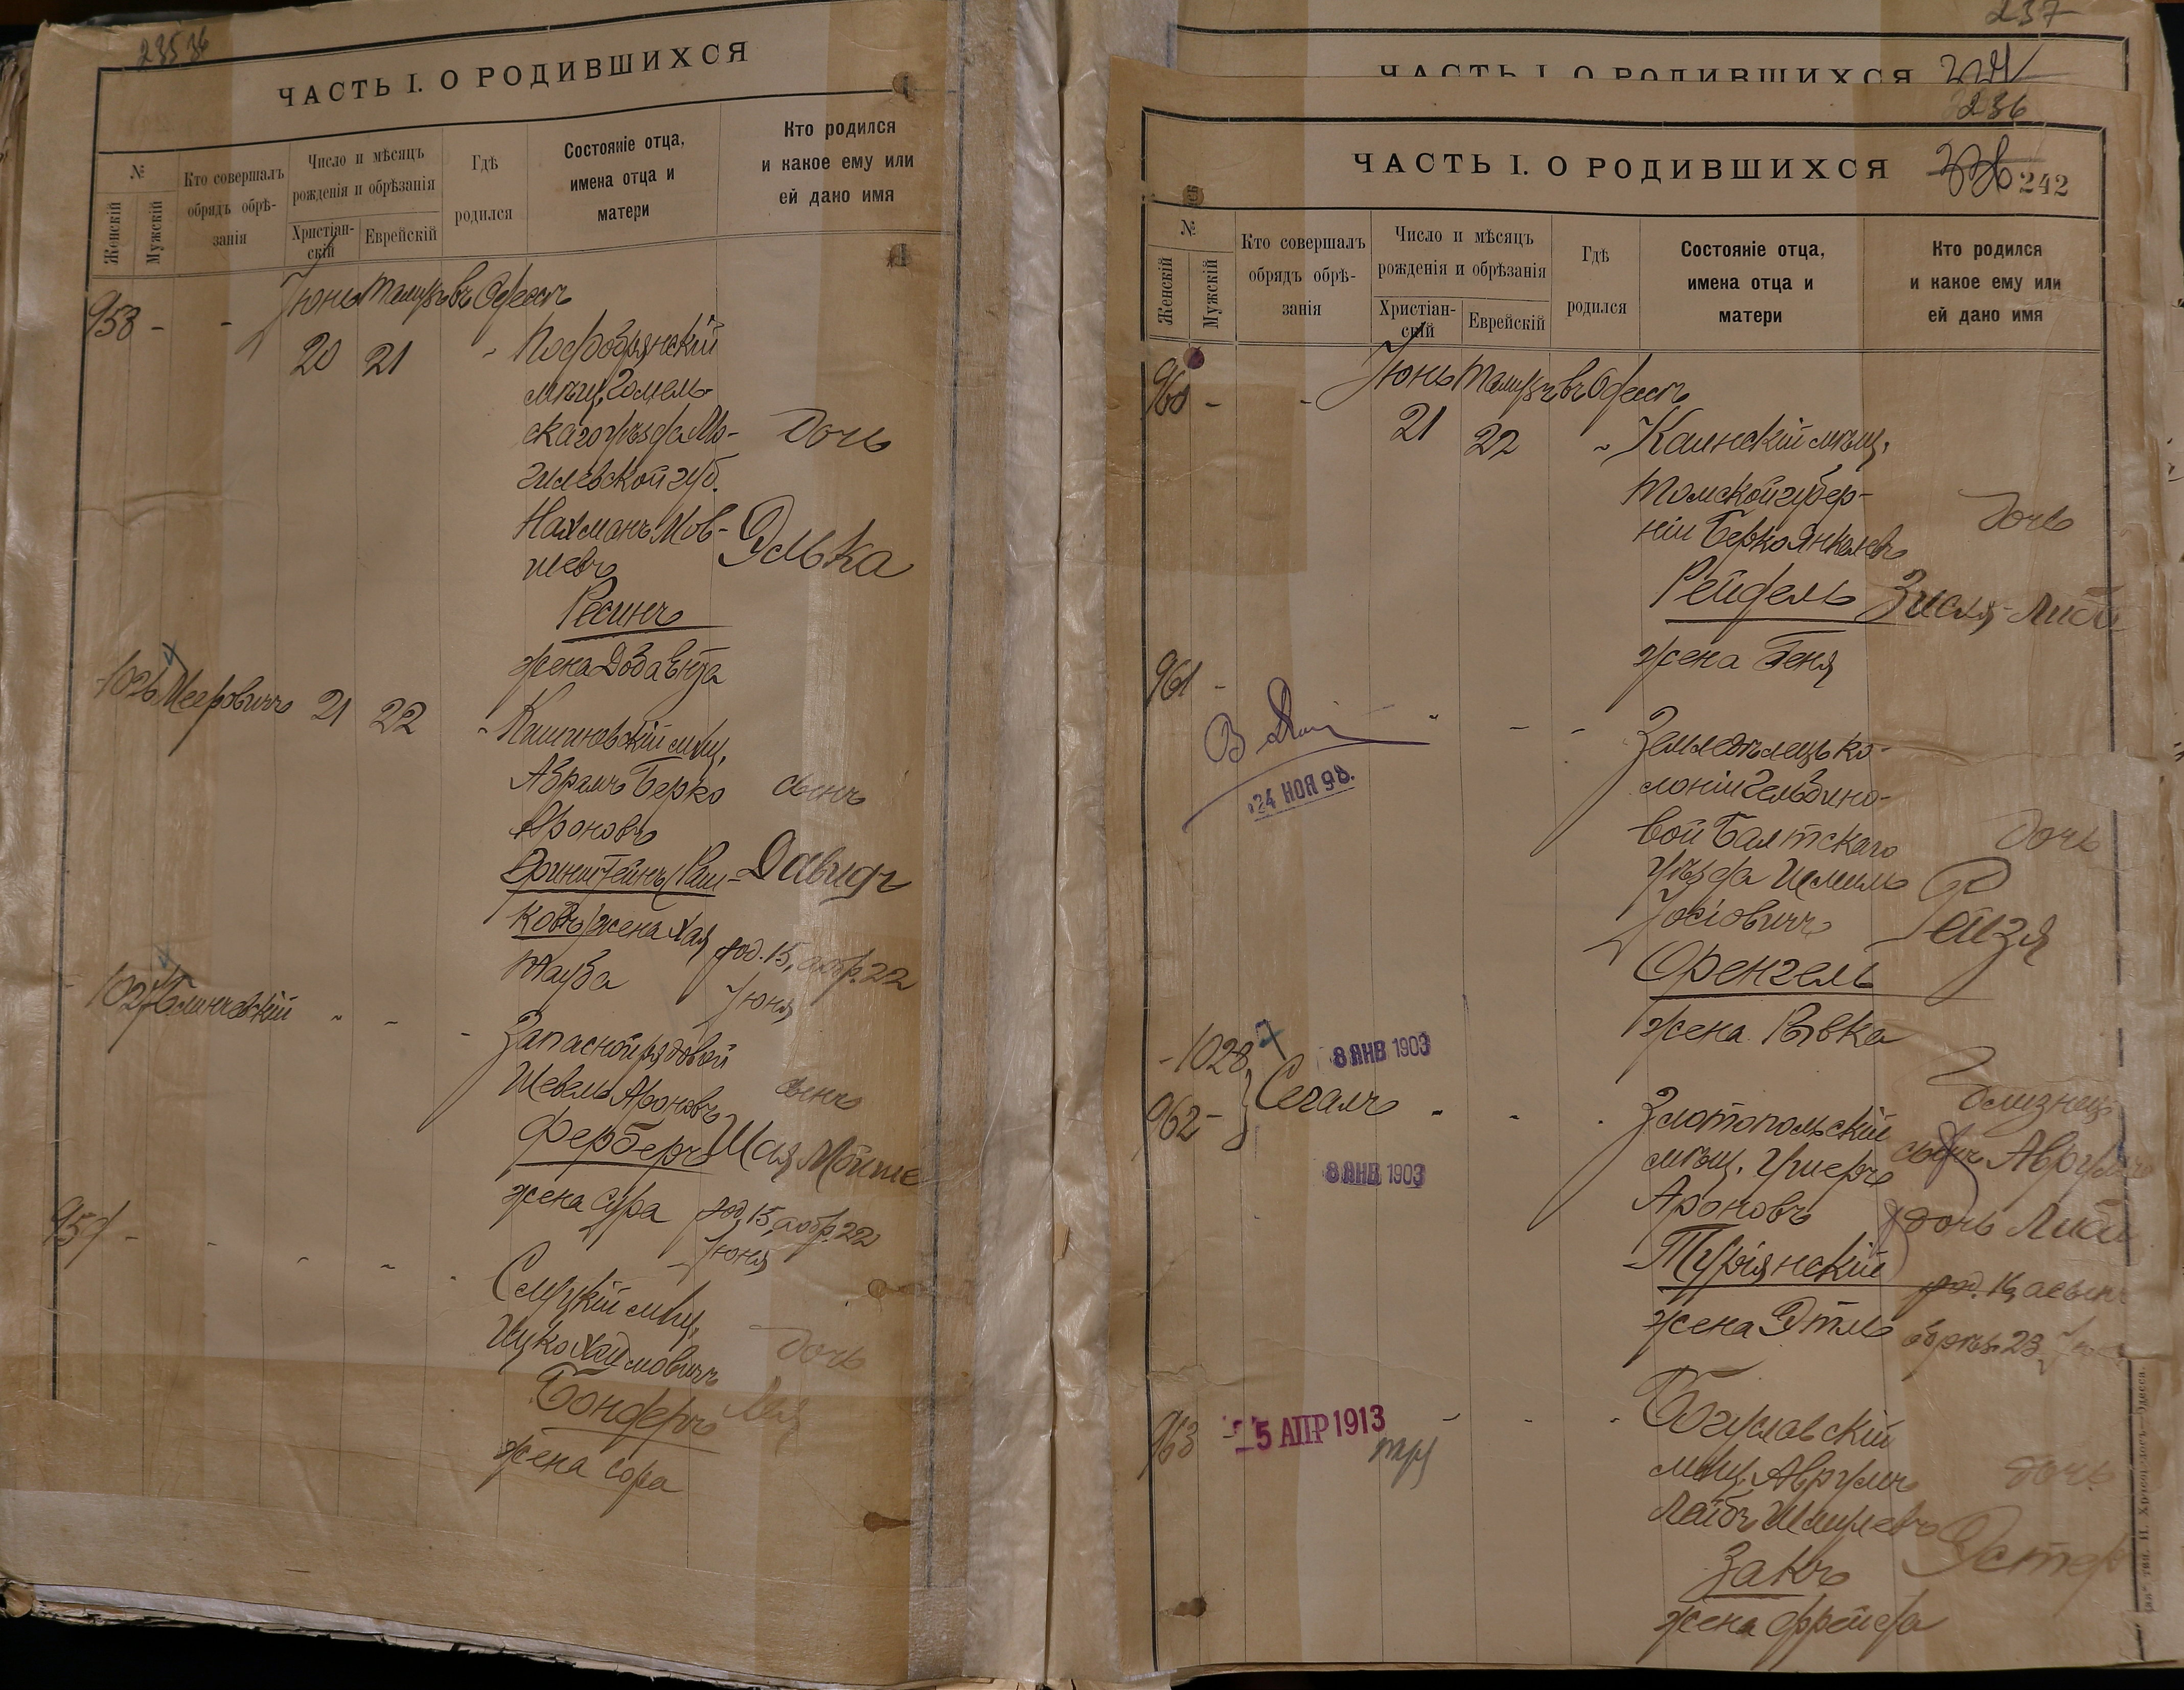 ЧАСТЬ I. О РОДИВШИХСЯ
№
Женскій
Мужскій
Кто совершалъ
обрядъ обрѣ-
занія
Число и мѣсяцъ
рожденія и обрѣзанія
Христіан-
скій
Еврейскій
Гдѣ
родился
Состояніе отца,
имена отца и
матери
Кто родился
и какое ему или
ей дано имя
958 - - Іюнь Тамузъ въ Одессѣ
20 21
мѣщ. Гомель-
скаго уѣзда Мо-
гилевской губ.
Нахманъ Мов-
шевъ
Ресинъ
жена Доба Ента
дочь
Элька
1026 Мееровичъ 21 22
мѣщ.
Абрамъ Берко
Ароновъ
Оринштейнъ (Раш-
ковъ) жена Хая
Тауба
сынъ
Давидъ
род. 15, а обр. 22
Іюня
1027
Запасной рядовой
Шевель Ароновъ
Ферберъ
жена Сура
сынъ
Шая Мойше
род. 15, а обр. 22
Іюня
959 -
Слуцкій мѣщ.
Ицко Хаимовичъ
Бондеръ
жена Сора
дочь
Лея
237
ЧАСТЬ I. О РОДИВШИХСЯ
236
ЧАСТЬ I. О РОДИВШИХСЯ
242
№
Женскій
Мужскій
Кто совершалъ
обрядъ обрѣ-
занія
Число и мѣсяцъ
рожденія и обрѣзанія
Христіан-
скій
Еврейскій
Гдѣ
родился
Состояніе отца,
имена отца и
матери
Кто родился
и какое ему или
ей дано имя
960 - - Іюнь Тамузъ въ Одессѣ
21 22
Каинскій мѣщ.
Томской губер-
ніи Берко Янкелевъ
Рейдель
жена Беня
дочь
Зисля-Либа
961 -
24 НОЯ 98.
Земледѣлецъ ко-
лоніи Гельбино-
вой Балтскаго
уѣзда Шмиль
Іосіовичъ
Френгель
жена Ривка
дочь
Рейзя
- 1028
962 -
Сегалъ
8 ЯНВ 1903
8 ЯНВ 1903
Златопольскій
мѣщ. Ушеръ
Ароновъ
Турiянскій
жена Этль
близнецы
сынъ Аврумъ
дочь Либа
род. 16, а сынъ
обрѣз. 23
963 - 25 АПР 1913
Богуславскій
мѣщ. Аврумъ
Лейбъ Шмулевъ
Закъ
жена Фрейда
дочь
Эстер